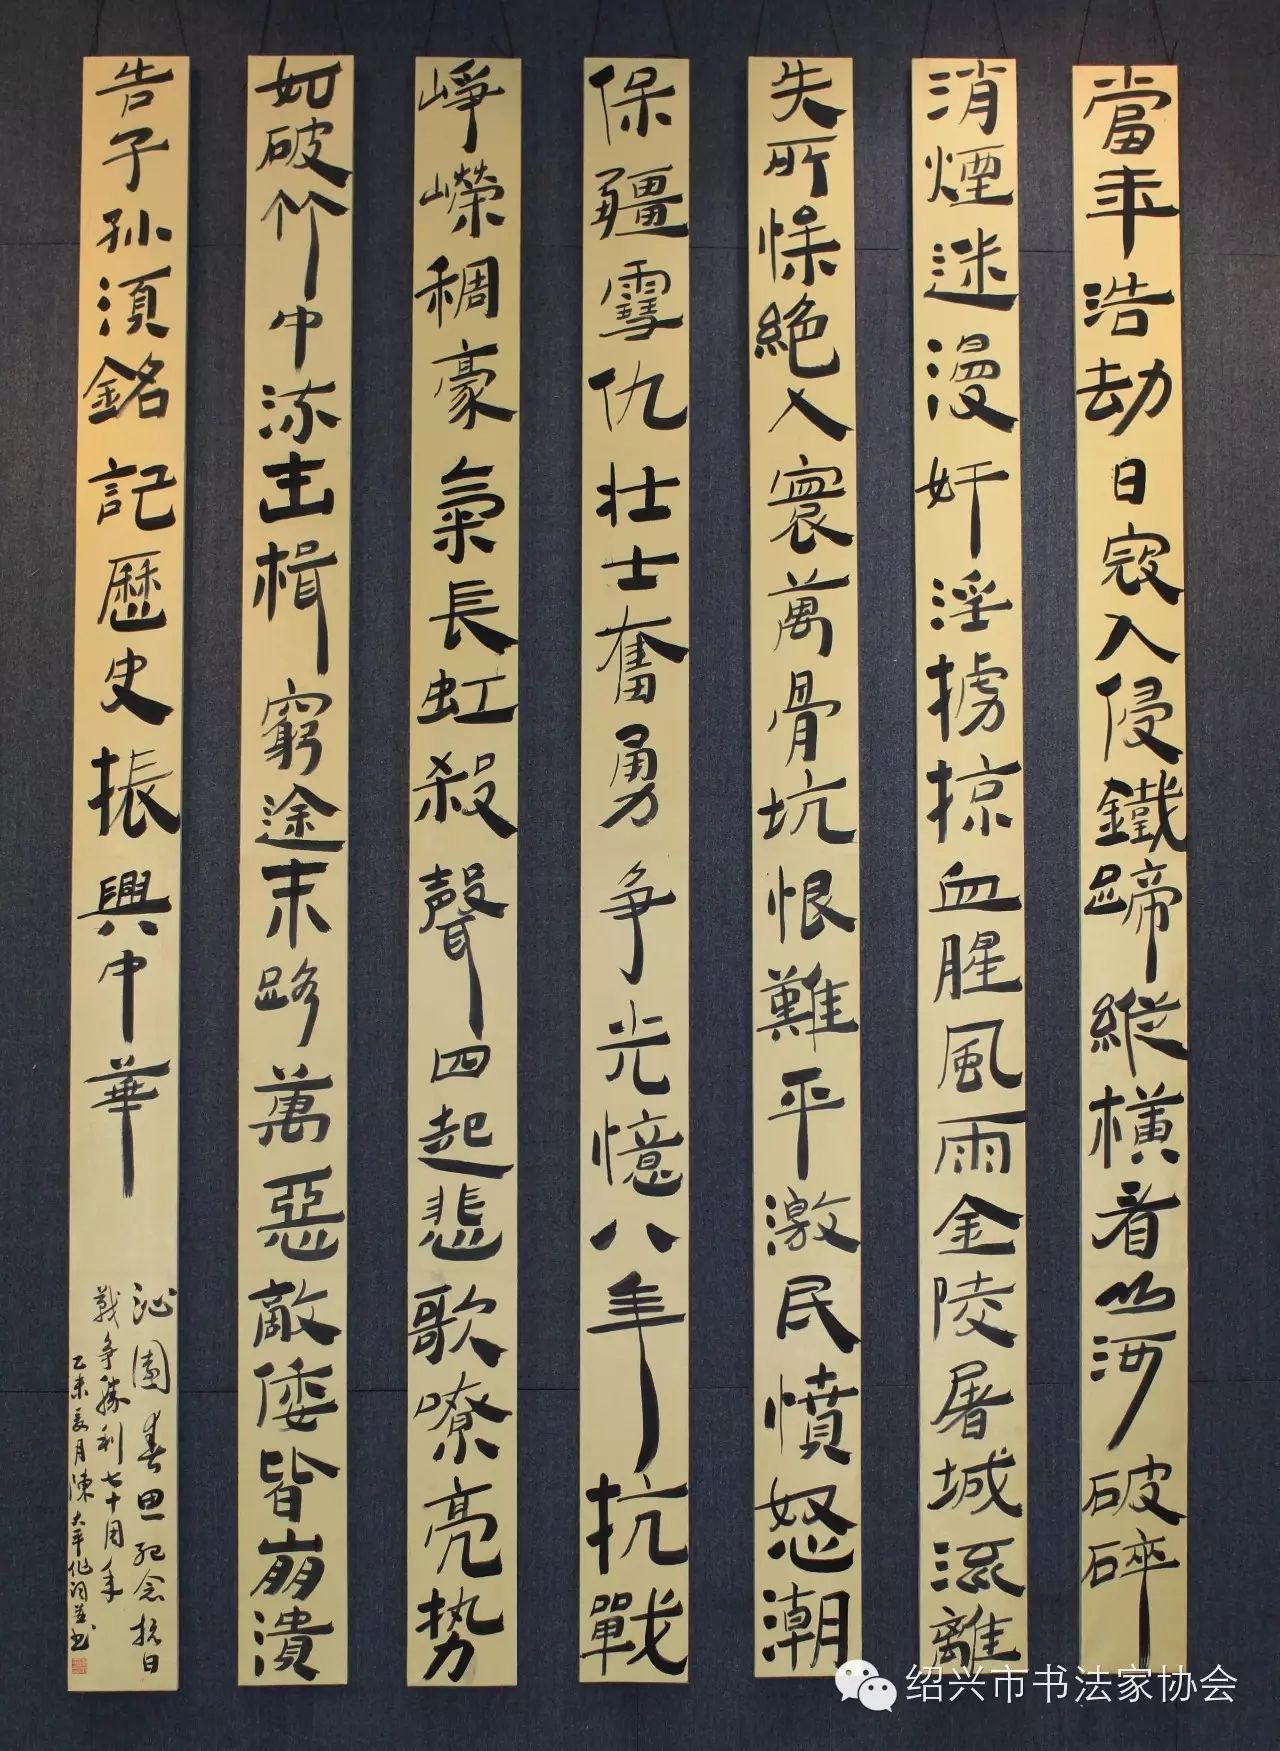 當年浩劫日寇入侵鐵蹄縱橫看山河破碎
消煙迷漫奸淫擄掠血腥風雨金陵屠城流離
失所慘絕人寰萬骨坑恨難平激民憤怒潮
保疆雪仇壯士奮勇爭光憶八年抗戰
崢嶸稠豪氣長虹殺聲四起悲歌嘹亮势
如破竹中流击楫窮途末路萬惡敵倭皆崩潰
告子孫須銘記歷史振興中華
沁園春 紀念抗日
戰爭勝利七十周年
乙未夏月陳大平作詞并书
绍兴市书法家协会